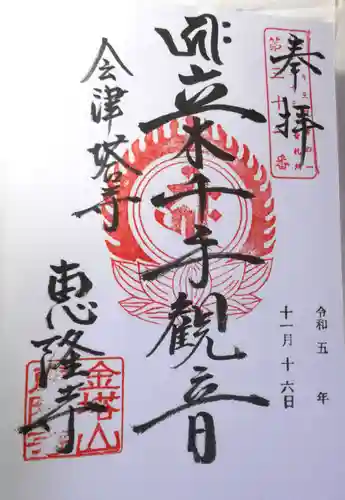 奉拝
第三十一番
立木千手観音
会津塔寺
恵隆寺
金塔山
令和五年
十一月十六日